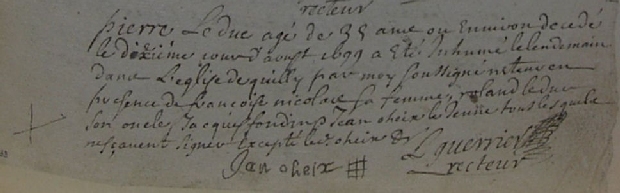 recteur
pierre Leduc agé de 35 ans ou Environ decedé
le dixiéme jour d'aoust 1699 a Eté Inhumé le lendemain
dans L'eglise de quilly par moy soussigné recteur en
presence de francoise nicolas sa femme, roland leduc
son oncle, Jacques Jean oheix le Jeune tous lesquels
ne sçavent signer Excepté le oheix
Jan oheix L guerrier
recteur